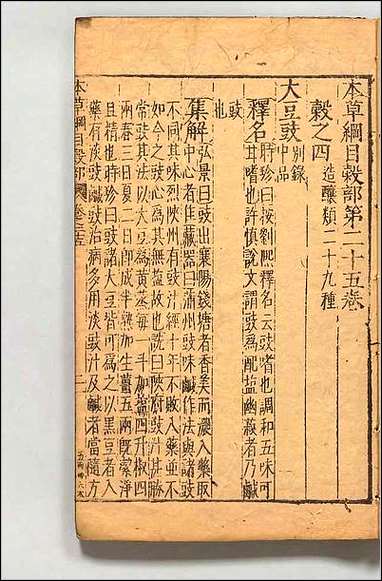 本草綱目穀部第二十五卷
穀之四 造釀類二十九種
大豆豉 别錄中品
釋名 時珍曰按劉熙釋名云豉者也調和五味可
甘嗜也許慎說文謂豉為配鹽幽菽者乃鹹
豉也
集解 弘景曰豉出襄陽錢塘者香美而濃入藥取
中心者佳藏器曰蒲州豉味鹹作法與諸豉
不同其味烈陝州有豉汁經十年不敗入藥並不
如今之豉心為其無鹽故也詵曰陝府豉汁甚勝
常豉其法以大豆為黃蒸每一斗加鹽四升椒四
兩春三日夏二日即成半熟加生薑五兩既潔淨
且精也時珍曰豉諸大豆皆可為之以黑豆者入
藥有淡豉鹹豉治病多用淡豉汁及鹹者當隨方
本草綱目穀部